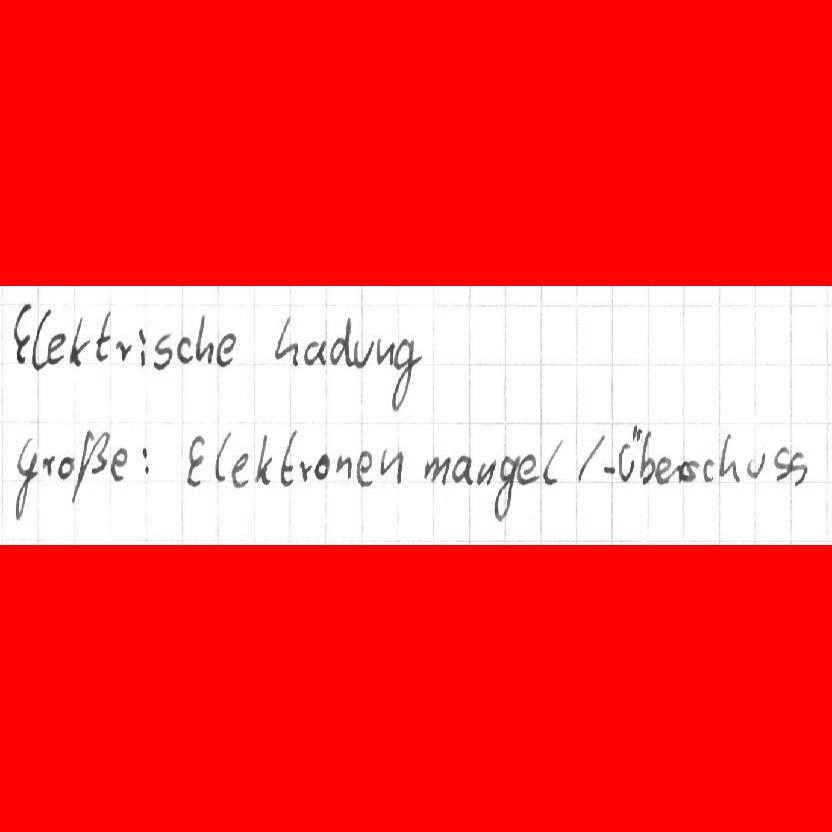 Elektrische Ladung
Große: Elektronenmangel/-Überschuss